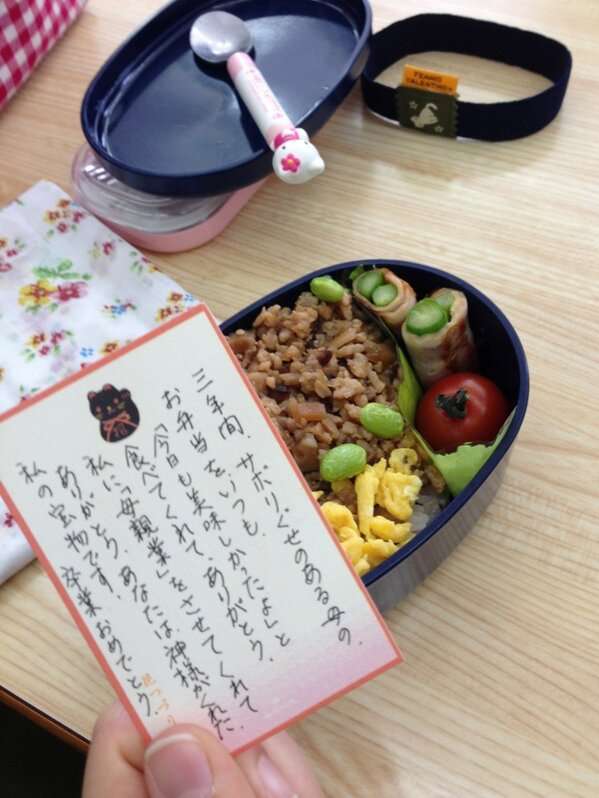 三年間、サボりぐせのある母の、
お弁当をいつも、
「今日も美味しかったよ」と
食べてくれて、ありがとう。
私に「母親業」をさせてくれて
ありがとう。あなたは神様がくれた、
私の宝物です。卒業おめでとう。
花つづり